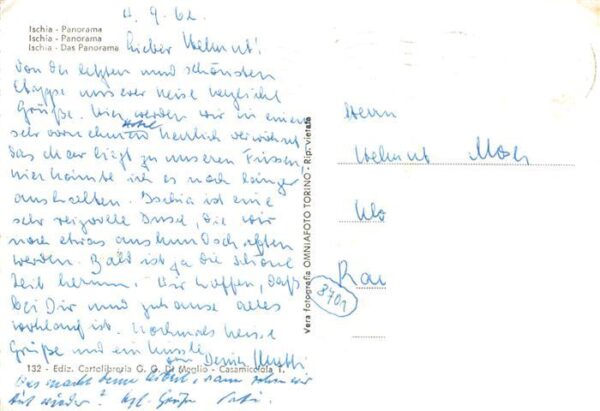 4.9.62.
Ischia - Panorama
Ischia - Panorama
Ischia - Das Panorama
Lieber Helmut!
Von der letzten und schönsten
Etappe unserer Reise herzlichst
Grüße. Hier werden wir in einem
sehr vornehmen Hotel herrlich verwöhnt
das Meer liegt zu unseren Füssen
hier könnte ich es noch länger
aushalten. Ischia ist eine
sehr reizvolle Insel, die wir
noch etwas auskundschaften
werden. Bald ist ja die schöne
Zeit herum. Wir hoffen, daß
bei Dir und zuhause alles
wohlauf ist. Nochmals
Grüße und ein Kussle
von Deiner Mutti
132 - Ediz. Cartolibreria G. G. Di Meglio - Casamicciola T.
Was macht denn wir
wieder? Hzl. Grüße
Vera fotografia OMNIAFOTO TORINO - Rip. vietata
Herrn
Helmut
8701